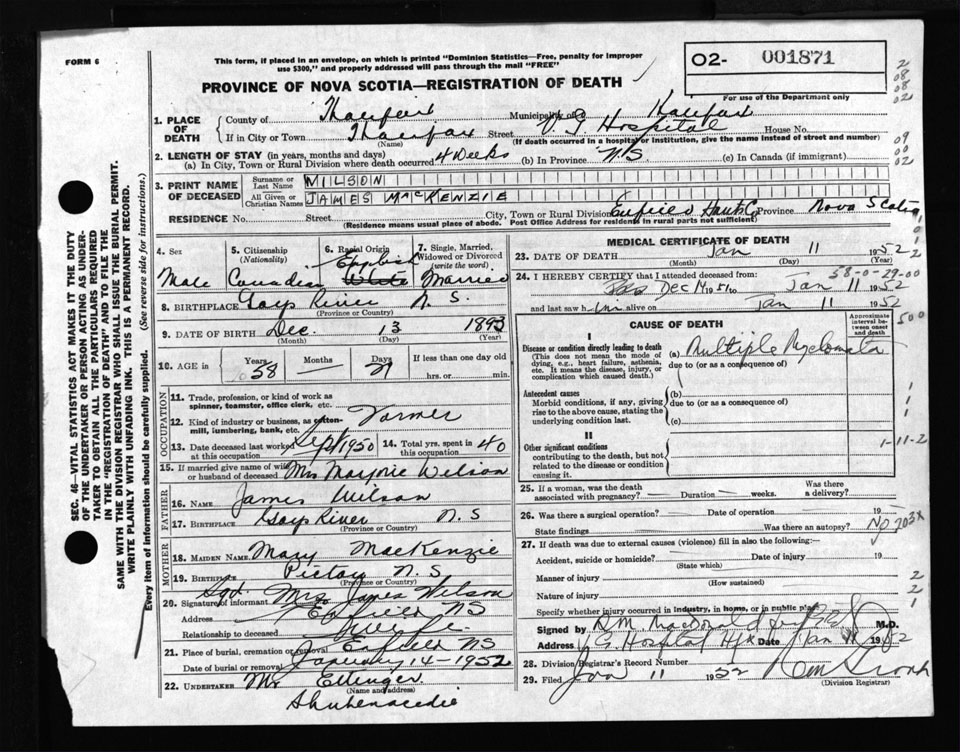 FORM 6
This form, if placed in an envelope, on which is printed "Dominion Statistics—Free, penalty for improper
use $300," and properly addressed will pass through the mail "FREE"
O2- 001871
For use of the Department only
PROVINCE OF NOVA SCOTIA—REGISTRATION OF DEATH
1. PLACE OF DEATH
County of Halifax Municipality of Halifax
If in City or Town Halifax Street V. G. Hospital House No.
(Name) (If death occurred in a hospital or institution, give the name instead of street and number)
2. LENGTH OF STAY (in years, months and days)
(a) In City, Town or Rural Division where death occurred 4 Weeks (b) In Province N.S (c) In Canada (if immigrant)
3. PRINT NAME OF DECEASED
Surname or Last Name WILSON
All Given or Christian Names JAMES MACKENZIE
RESIDENCE No. Street City, Town or Rural Division Enfield Hants Co Province Nova Scotia
(Residence means usual place of abode. Post Office Address for residents in rural parts not sufficient)
4. Sex Male
5. Citizenship (Nationality) Canadian
6. Racial Origin English White
7. Single, Married, Widowed or Divorced (write the word) Married
8. BIRTHPLACE Gays River N. S.
(Province or Country)
9. DATE OF BIRTH Dec. 13 1893
(Month) (Day) (Year)
10. AGE in Years 58 Months — Days 29 If less than one day old
hrs. or min.
OCCUPATION
11. Trade, profession, or kind of work as
spinner, teamster, office clerk, etc.
12. Kind of industry or business, as cotton-
mill, lumbering, bank, etc. Farmer
13. Date deceased last worked at this occupation Sept 1950 14. Total yrs. spent in this occupation 40
15. If married give name of wife or husband of deceased Mrs Marjorie Wilson
FATHER
16. NAME James Wilson
17. BIRTHPLACE Gays River N S
(Province or Country)
MOTHER
18. MAIDEN NAME Mary MacKenzie
19. BIRTHPLACE Pictou N. S
(Province or Country)
20. Signature of informant Sgd. Mrs James Wilson
Address Enfield NS
Relationship to deceased Wife
21. Place of burial, cremation or removal Enfield NS
Date of burial or removal January 14-1952
22. UNDERTAKER Mr Ettinger
(Name and address)
Shubenacadie
MEDICAL CERTIFICATE OF DEATH
23. DATE OF DEATH Jan 11 1952
(Month) (Day) (Year)
58-0-29-00
24. I HEREBY CERTIFY that I attended deceased from
Dec 14 1951 to Jan 11 1952
and last saw him alive on Jan 11 1952
CAUSE OF DEATH
Approximate interval between onset and death
I
Disease or condition directly leading to death
(This does not mean the mode of dying, e.g., heart failure, asthenia, etc. It means the disease, injury, or complication which caused death.)
(a) Multiple Myelomata
due to (or as a consequence of)
Antecedent causes
Morbid conditions, if any, giving rise to the above cause, stating the underlying condition last.
(b)
due to (or as a consequence of)
(c)
II
Other significant conditions
contributing to the death, but not related to the disease or condition causing it.
1-11-2
25. If a woman, was the death associated with pregnancy? Duration weeks. Was there a delivery?
26. Was there a surgical operation? Date of operation 195
State findings Was there an autopsy? No 203X
27. If death was due to external causes (violence) fill in also the following:
Accident, suicide or homicide? Date of injury 19
(State which)
Manner of injury
(How sustained)
Nature of injury
Specify whether injury occurred in industry, in home, or in public place
Signed by D.M. MacDonald M.D.
V. G. Hospital Hfx Date Jan 11 1952
28. Division Registrar's Record Number
29. Filed Jan 11 1952
(Division Registrar)
SEC. 46—VITAL STATISTICS ACT MAKES IT THE DUTY
OF THE UNDERTAKER OR PERSON ACTING AS UNDER-
TAKER TO OBTAIN ALL THE PARTICULARS REQUIRED
IN THE "REGISTRATION OF DEATH" AND TO FILE THE
SAME WITH THE DIVISION REGISTRAR WHO SHALL ISSUE THE BURIAL PERMIT.
WRITE PLAINLY WITH UNFADING INK. THIS IS A PERMANENT RECORD.
Every item of information should be carefully supplied. (See reverse side for instructions.)